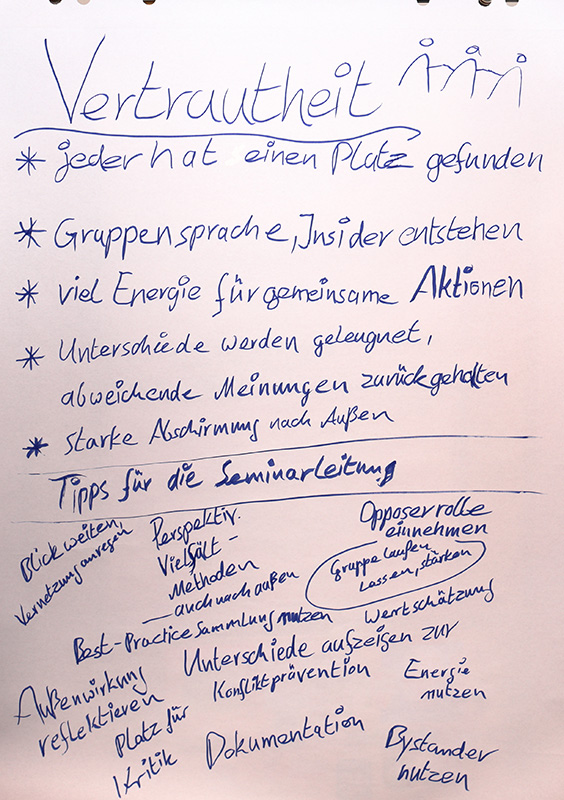 Vertrautheit
* jeder hat einen Platz gefunden
* Gruppensprache, Insider entstehen
* viel Energie für gemeinsame Aktionen
* Unterschiede werden geleugnet,
abweichende Meinungen zurückgehalten
* starke Abschirmung nach Außen
Tipps für die Seminarleitung
Blick weiten,
Vernetzung anregen
Perspektiv.
Vielfält-
Methoden
– auch nach außen
Opposerrolle
einnehmen
Gruppe laufen
lassen, stärken
Best-Practice Sammlung nutzen
Wertschätzung
Unterschiede aufzeigen zur
Konfliktprävention
Außenwirkung
reflektieren
Energie
nutzen
Platz für
Kritik
Dokumentation
Bystander
nutzen